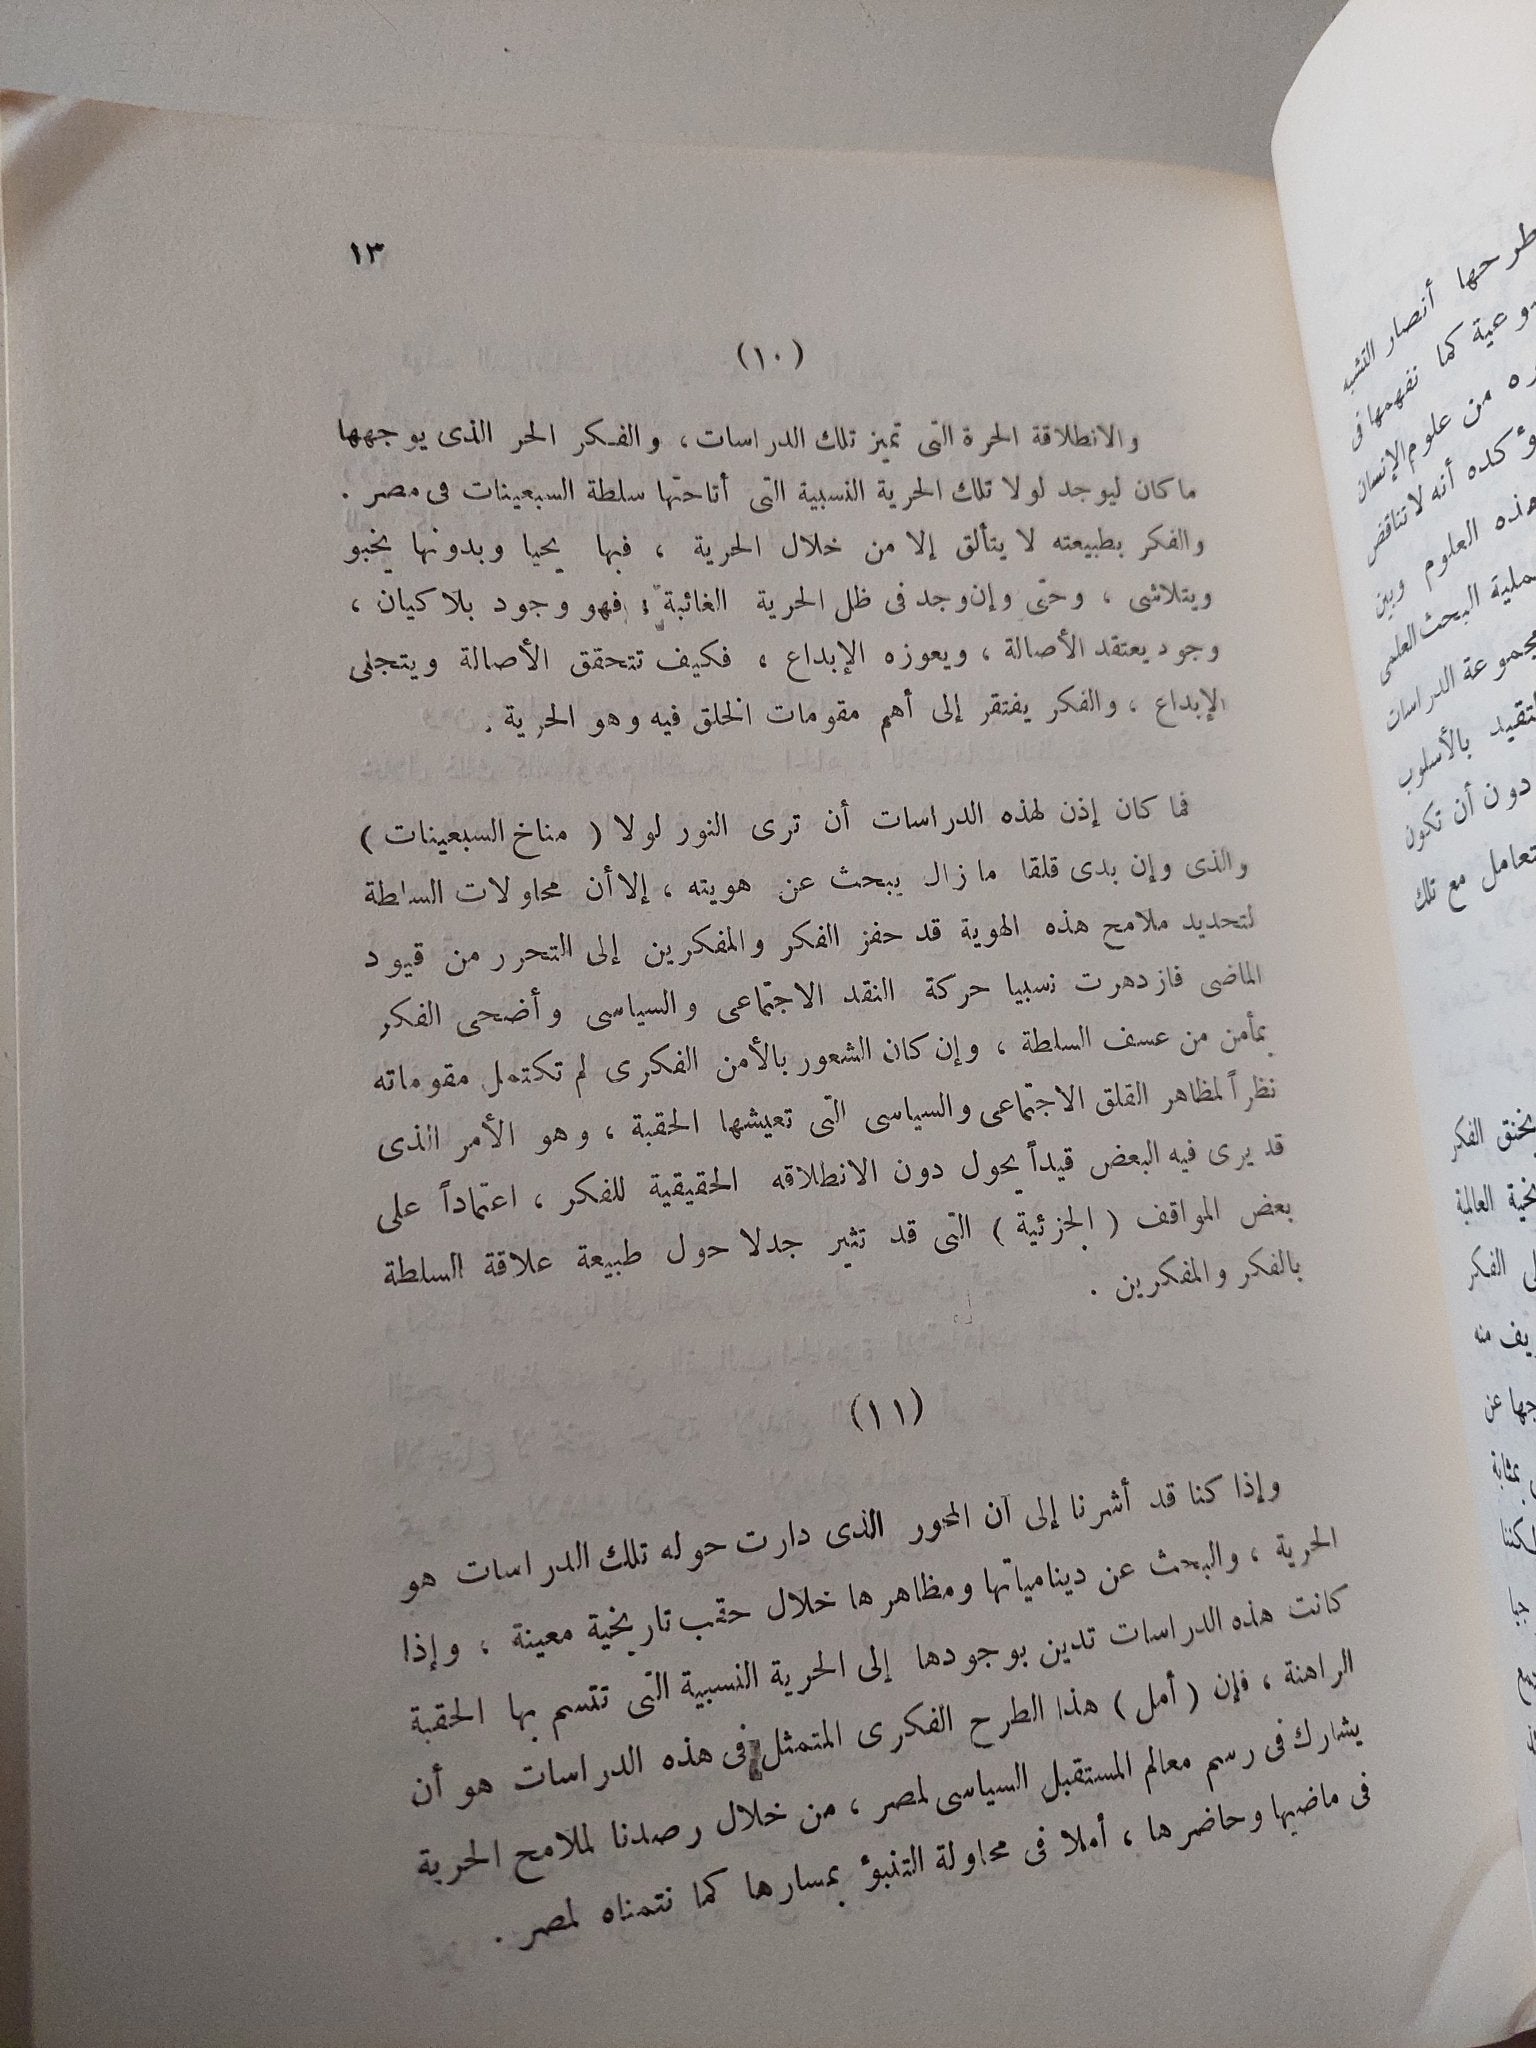 ١٣
(١٠)
والانطلاقة الحرة التى تميز تلك الدراسات ، والفكر الحر الذى يوجهها
ما كان ليوجد لولا تلك الحرية النسبية التى أتاحتها سلطة السبعينات فى مصر .
والفكر بطبيعته لا يتألق إلا من خلال الحرية ، فبها يحيا وبدونها يخبو
ويتلاشى ، وحتى وإن وجد فى ظل الحرية الغائبة ؛ فهو وجود بلا كيان ،
وجود يعتقد الأصالة ، ويعوزه الإبداع ، فكيف تتحقق الأصالة ويتجلى
الإبداع ، والفكر يفتقر إلى أهم مقومات الخلق فيه وهو الحرية .
فما كان إذن لهذه الدراسات أن ترى النور لولا ( مناخ السبعينات )
والذى وإن بدى قلقا ما زال يبحث عن هويته ، إلا أن محاولات السلطة
لتحديد ملامح هذه الهوية قد حفز الفكر والمفكرين إلى التحرر من قيود
الماضى فازدهرت نسبيا حركة النقد الاجتماعى والسياسى وأضحى الفكر
بمأمن من عسف السلطة ، وإن كان الشعور بالأمن الفكرى لم تكتمل مقوماته
نظراً لمظاهر القلق الاجتماعى والسياسى التى تعيشها الحقبة ، وهو الأمر الذى
قد يرى فيه البعض قيداً يحول دون الانطلاقه الحقيقية للفكر ، اعتماداً على
بعض المواقف ( الجزئية ) التى قد تثير جدلا حول طبيعة علاقة السلطة
بالفكر والمفكرين .
(١١)
وإذا كنا قد أشرنا إلى أن المحور الذى دارت حوله تلك الدراسات هو
الحرية ، والبحث عن دينامياتها ومظاهرها خلال حقب تاريخية معينة ، وإذا
كانت هذه الدراسات تدين بوجودها إلى الحرية النسبية التى تتسم بها الحقبة
الراهنة ، فإن ( أمل ) هذا الطرح الفكرى المتمثل فى هذه الدراسات هو أن
يشارك فى رسم معالم المستقبل السياسى لمصر ، من خلال رصدنا لملامح الحرية
فى ماضيها وحاضرها ، أملا فى محاولة التنبؤ بمسارها كما نتمناه لمصر .
طرحها أنصار التشبه
وعية كما نفهمها فى
من علوم الإنسان
ؤكده أنه لا تناقض
هذه العلوم وبين
عملية البحث العلمى
مجموعة الدراسات
التقيد بالأسلوب
دون أن تكون
تعامل مع تلك
يخنق الفكر
العالمة
الفكر
يف منه
جها عن
بمثابة